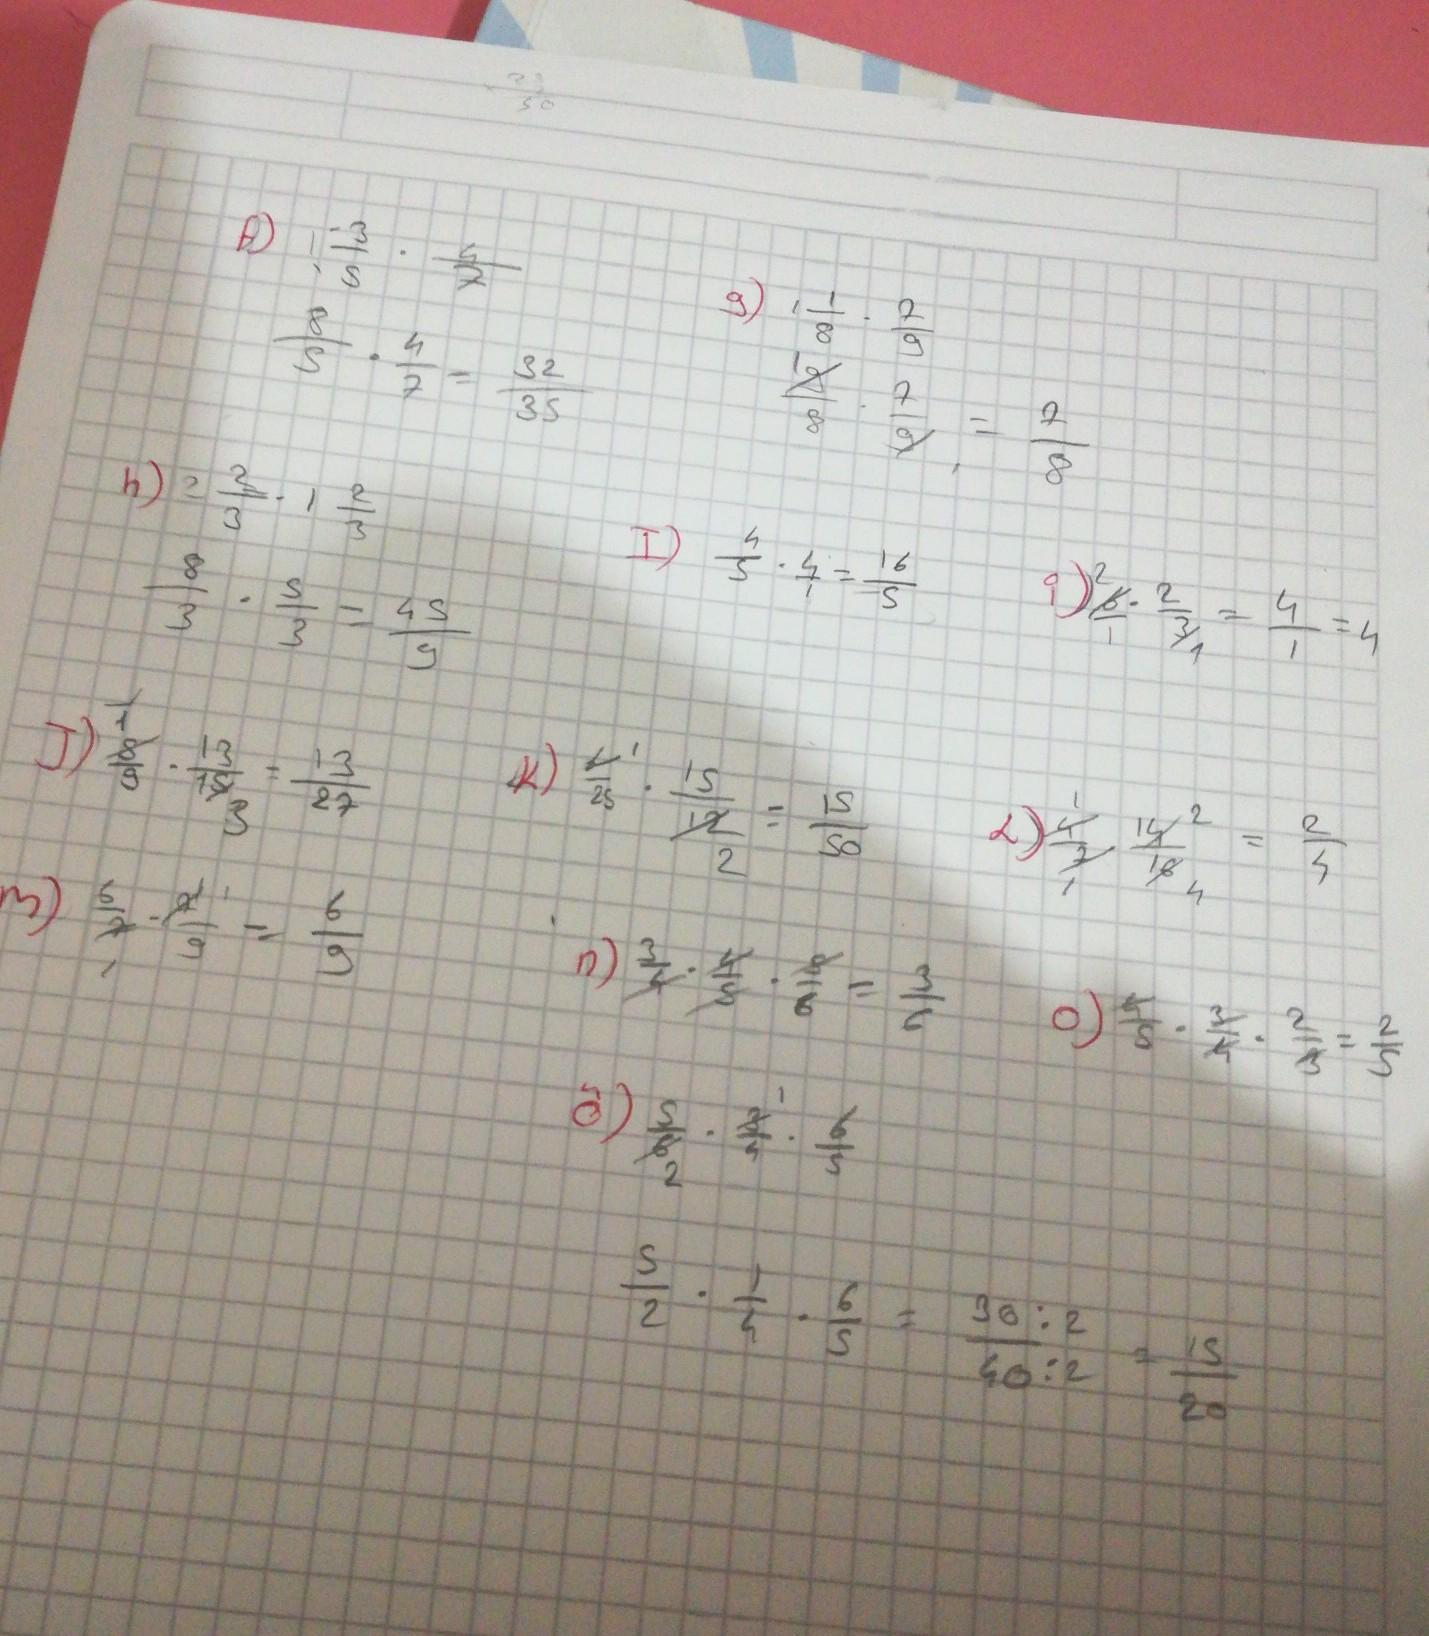 23/50
f) 1 3/5 · 4/7
8/5 · 4/7 = 32/35
g) 1 1/8 · 7/9
9/8 · 7/9 = 7/8
h) 2 2/3 · 1 2/3
8/3 · 5/3 = 45/9
I) 4/5 · 4/1 = 16/5
i) 6/1 · 2/3 = 4/1 = 4
J) 13/15 = 13/27
K) /25 · 15/12 = 15/50
L) 4/7 · 14/16 = 2/4
m) 6/7 · 7/9 = 6/9
n) 3/4 · 4/5 · /6 = 3/6
o) 4/5 · 3/4 · 2/3 = 2/5
ö) 5/8 · 2/4 · 6/5
5/2 · 1/4 · 6/5 = 30:2/40:2 = 15/20